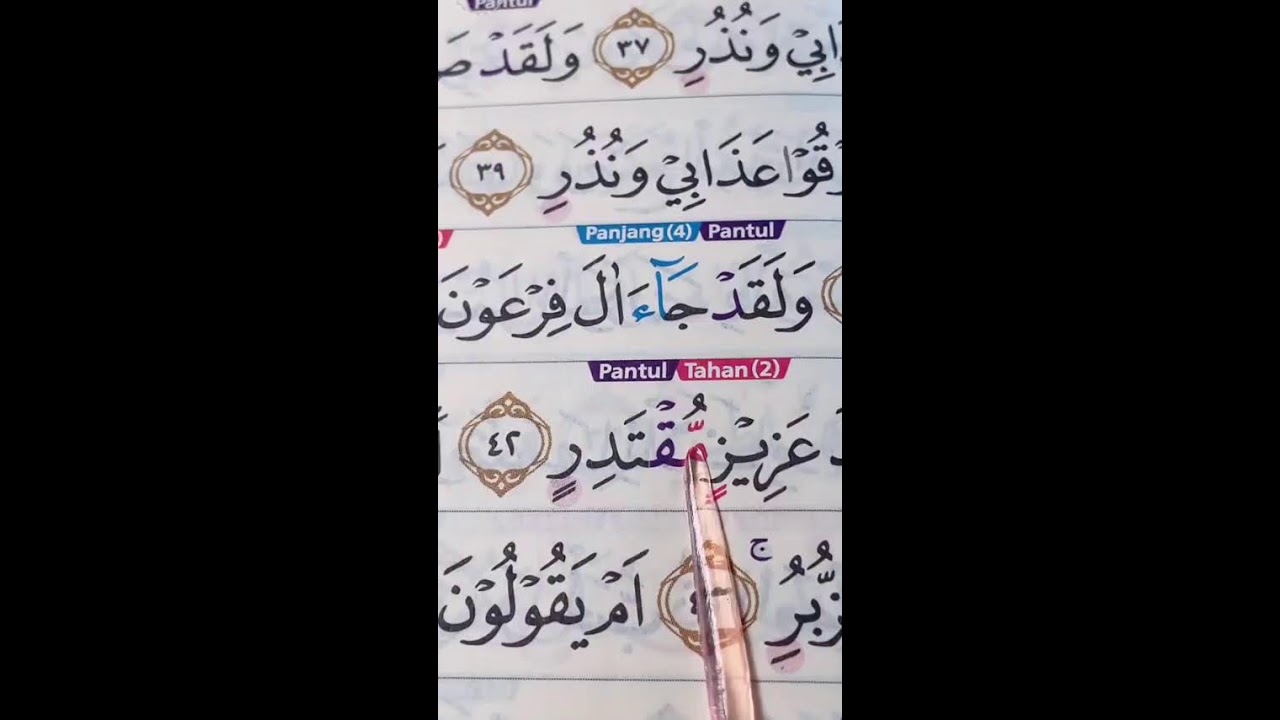 Pantul
ابِيْ وَنُذُرِ ٣٧ وَلَقَدْ صَ
قُوْا عَذَابِيْ وَنُذُرِ ٣٩
Panjang(4) Pantul
وَلَقَدْ جَآءَ اٰلَ فِرْعَوْنَ
Pantul Tahan(2)
عَزِيْزٍ مُّقْتَدِرٍ ٤٢
زُّبُرِۚ ٤٣ اَمْ يَقُوْلُوْنَ